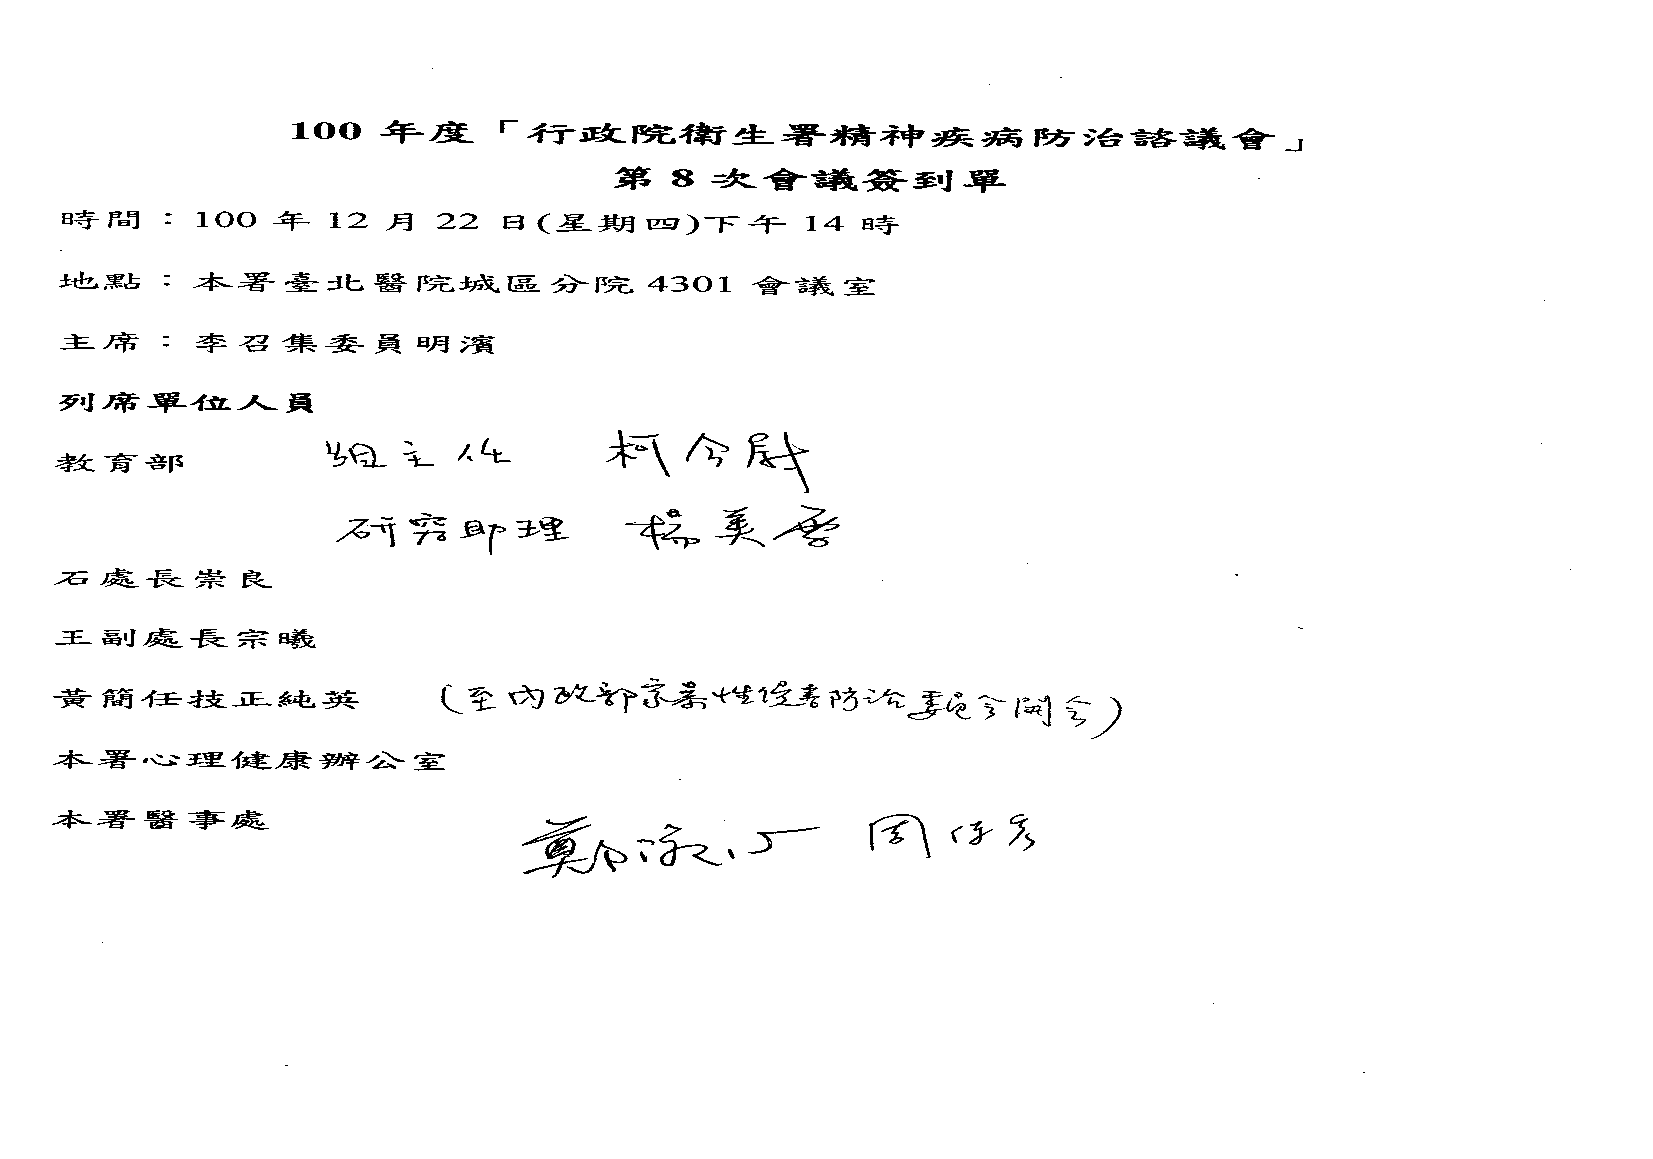 100 年度「行政院衛生署精神疾病防治諮議會」
第 8 次會議簽到單
時間：100 年 12 月 22 日(星期四)下午 14 時
地點：本署臺北醫院城區分院 4301 會議室
主席：李召集委員明濱
列席單位人員
教育部 組主任 柯今尉
研究助理 楊美
石處長崇良
王副處長宗曦
黃簡任技正純英 (至內政部家暴性侵害防治委員會開會)
本署心理健康辦公室
本署醫事處 鄭淑心 周